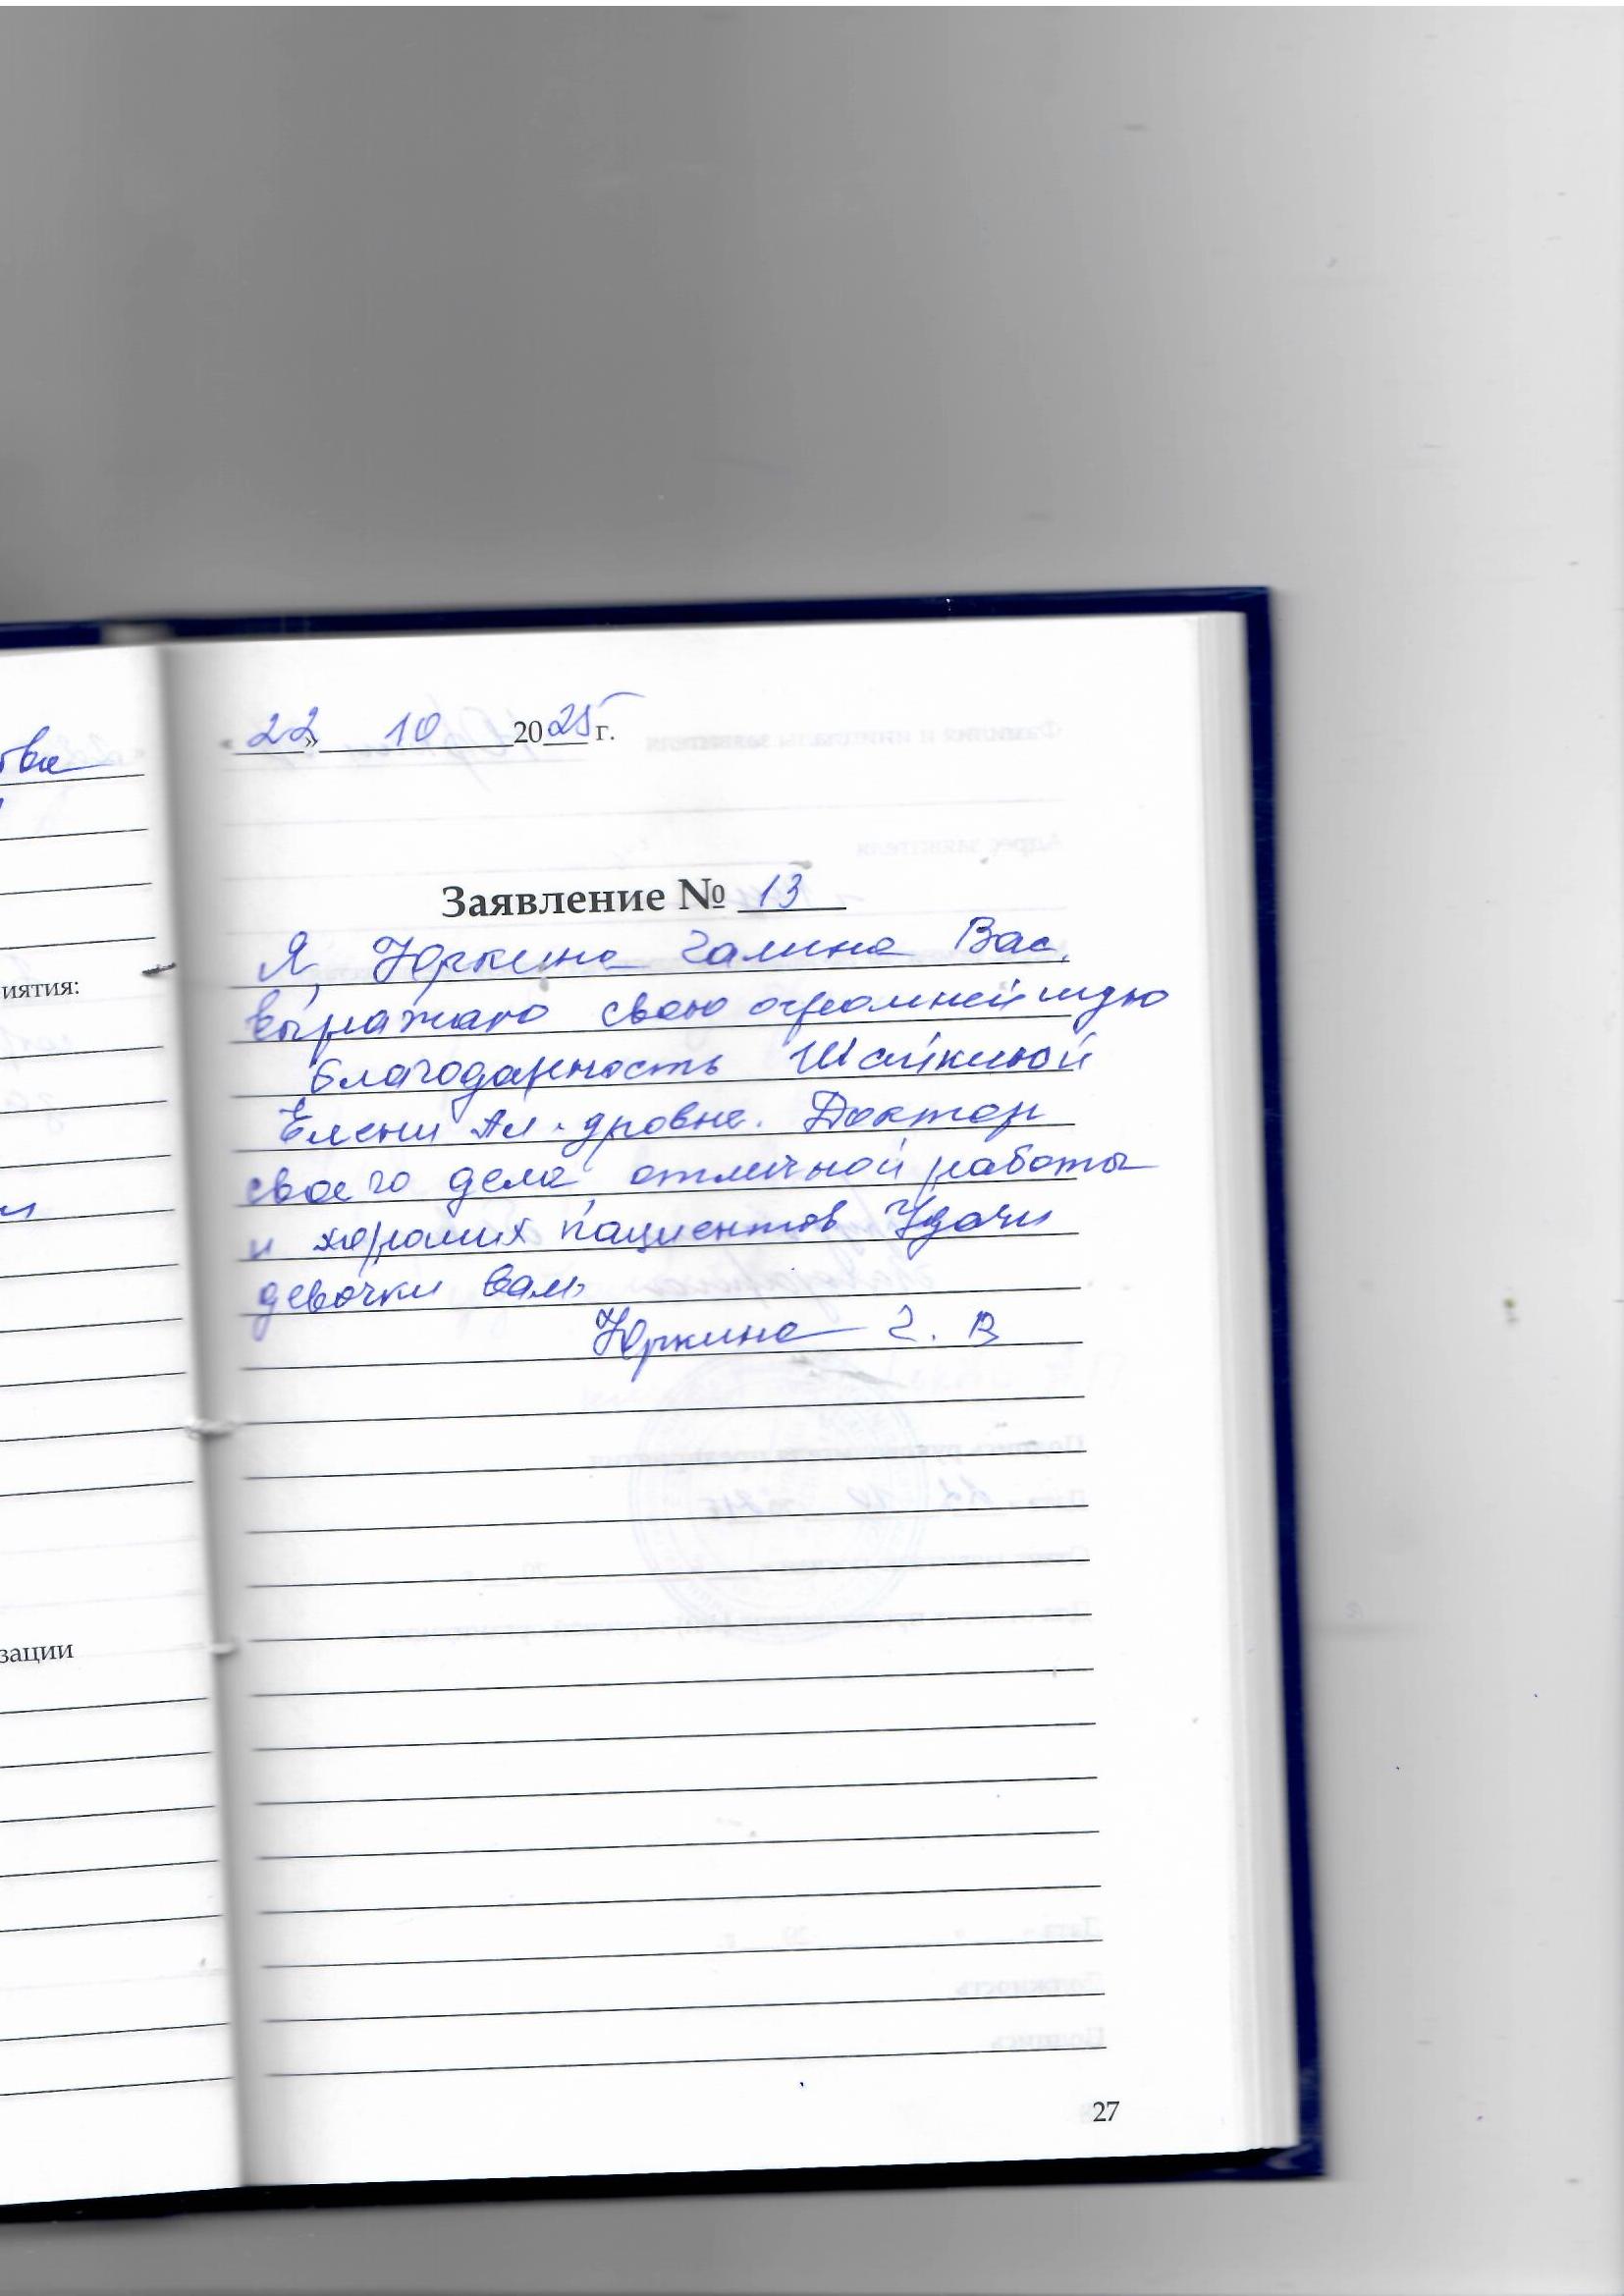 твие
иятия:
зации
«22» 10 2025 г.
Заявление № 13
Я, Юркина Галина Вас.
выражаю свою огромнейшую
благодарность Шайкиной
Елени Ал-дровне. Доктор
своего дела, отличной работы
и хороших пациентов Удачи
девочки вам
Юркина Г. В
27